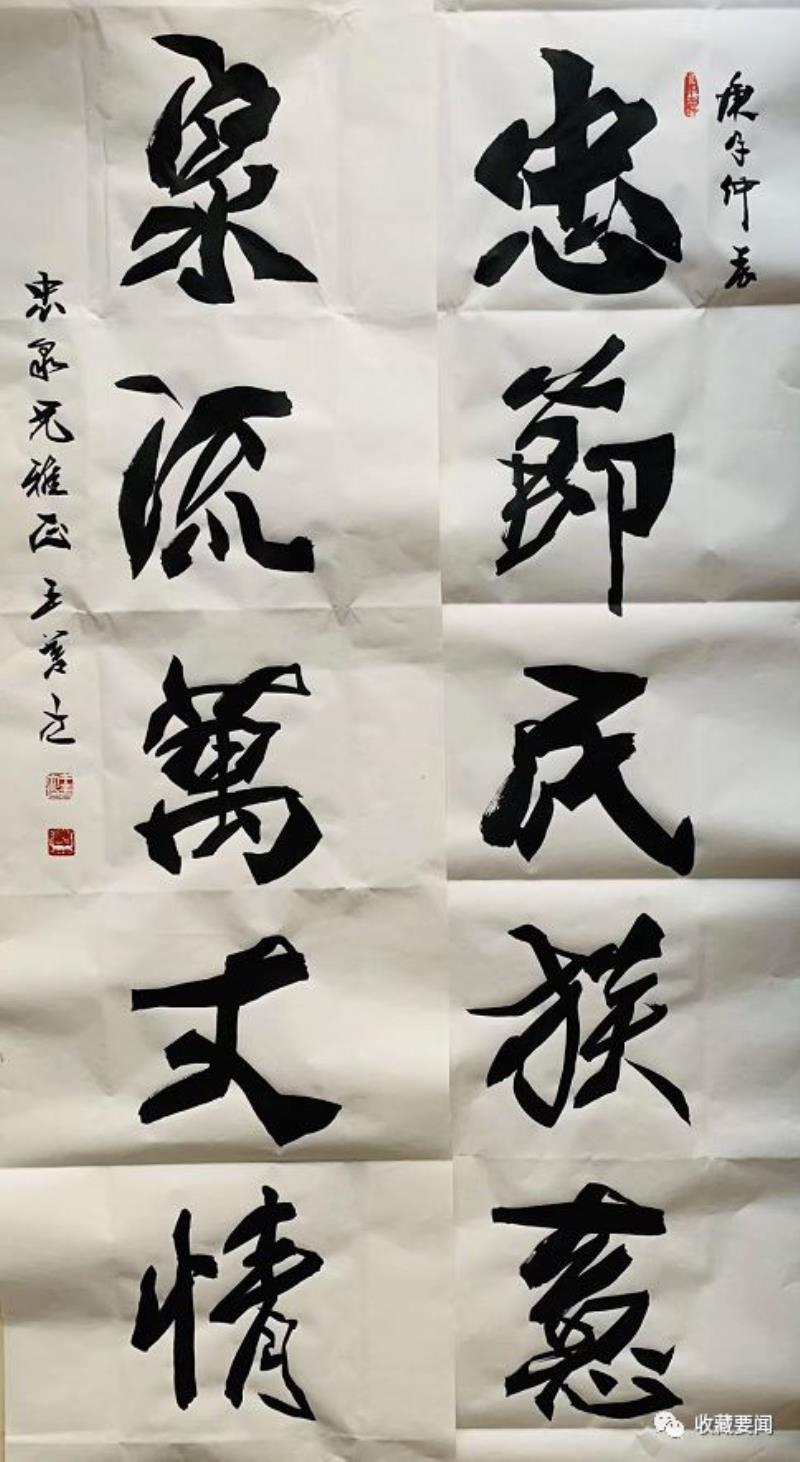 庚子仲春
忠節民族意
泉流萬丈情
忠泉兄雅正 王
收藏要闻